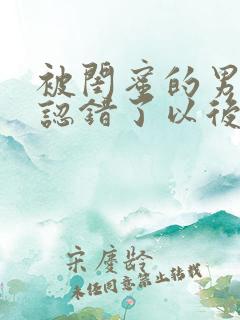 被閨蜜的男
認錯了以後
宋慶齡
未经同意禁止转载